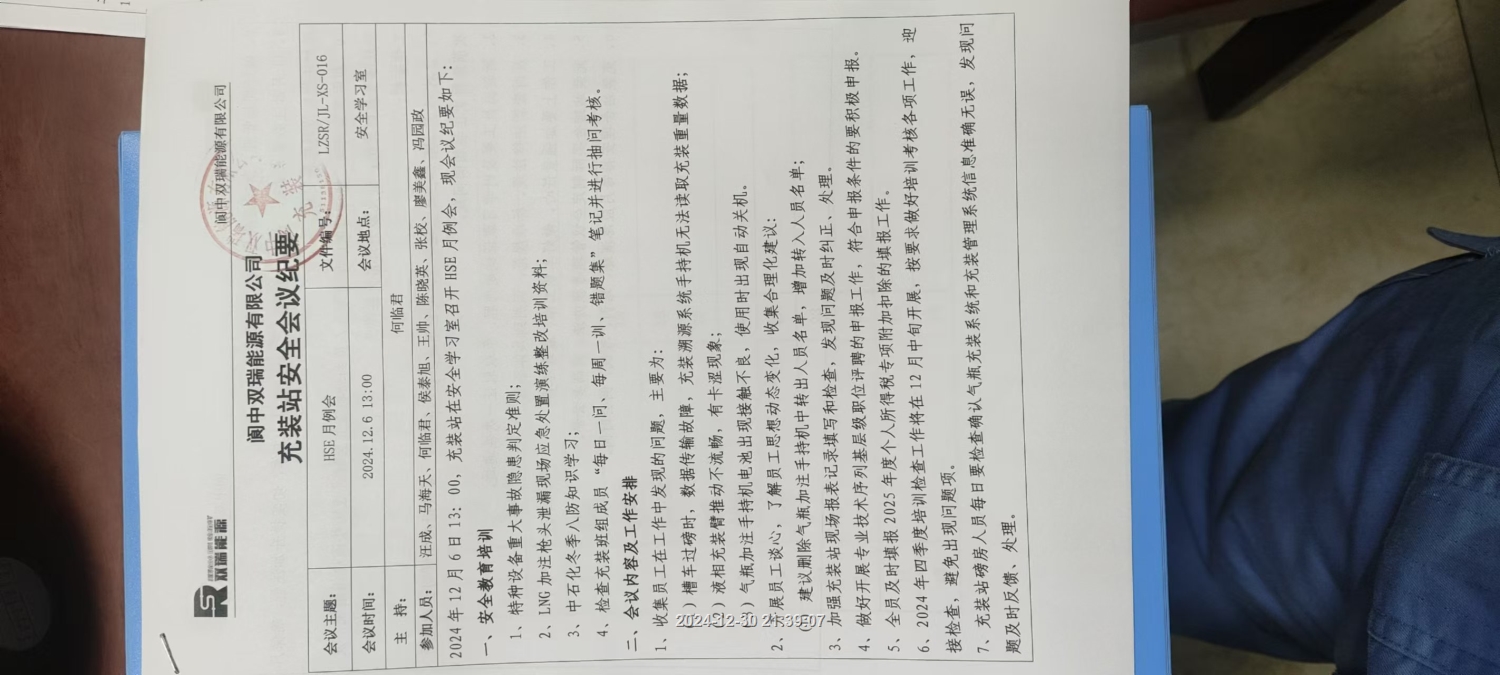 双瑞能源
阆中双瑞能源有限公司
阆中双瑞能源有限公司
充装站安全会议纪要
会议主题： HSE 月例会 文件编号： LZSR/JL-XS-016
会议时间： 2024.12.6 13:00 会议地点： 安全学习室
主 持： 何临君
参加人员： 汪成、马海天、何临君、侯秦旭、王帅、陈晓英、张校、廖美鑫、冯园政
2024 年 12 月 6 日 13：00，充装站在安全学习室召开 HSE 月例会，现会议纪要如下：
一、安全教育培训
1、特种设备重大事故隐患判定准则；
2、LNG 加注枪头泄漏现场应急处置演练整改培训资料；
3、中石化冬季八防知识学习；
4、检查充装班组成员“每日一问、每周一训、错题集”笔记并进行抽问考核。
二、会议内容及工作安排
1、收集员工在工作中发现的问题，主要为：
）槽车过磅时，数据传输故障，充装溯源系统手持机无法读取充装重量数据；
）液相充装臂推动不流畅，有卡涩现象；
）气瓶加注手持机电池出现接触不良，使用时出现自动关机。
2、开展员工谈心，了解员工思想动态变化，收集合理化建议：
① 建议删除气瓶加注手持机中转出人员名单，增加转入人员名单；
3、加强充装站现场报表记录填写和检查，发现问题及时纠正、处理。
4、做好开展专业技术序列基层级职位评聘的申报工作，符合申报条件的要积极申报。
5、全员及时填报 2025 年度个人所得税专项附加扣除的填报工作。
6、2024 年四季度培训检查工作将在 12 月中旬开展，按要求做好培训考核各项工作，迎
接检查，避免出现问题项。
7、充装站磅房人员每日要检查确认气瓶充装系统和充装管理系统信息准确无误，发现问
题及时反馈、处理。
2024-12-30 21:39:07